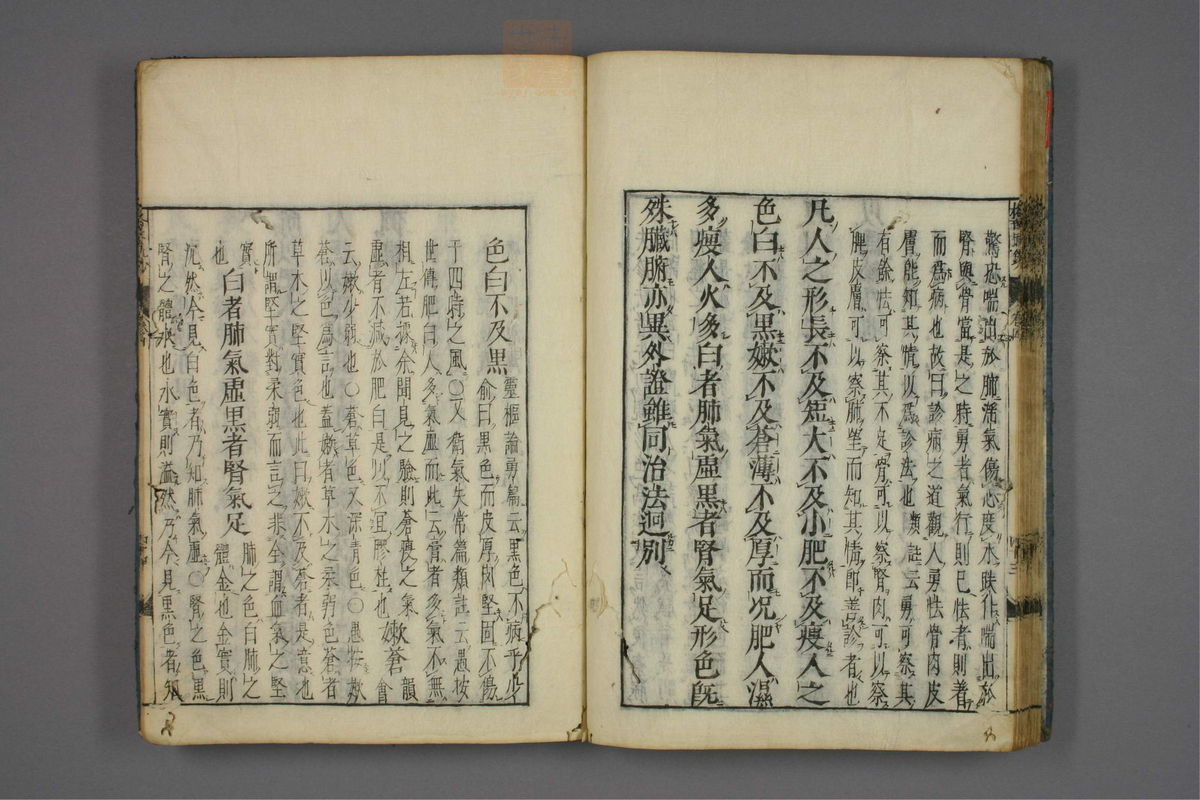 驚恐喘出於肺淫氣傷心度水跌仆喘出於
腎與骨當是之時勇者氣行則已怯者則著
而爲病也故曰診病之道觀人勇怯骨肉皮
膚能知其情以爲診法也類註云勇可察其
有餘怯可察其不足骨可以察腎肉可以察
脾皮膚可以察肺坐而知其情即善診者也
凡人之形長不及短大不及小肥不及瘦人之
色白不及黒嫩不及蒼薄不及厚而况肥人濕
多瘦人火多白者肺氣虚黒者腎氣足形色旣
殊臟腑亦異外證雖同治法迥別
色白不及黒
靈樞論勇篇云黒色不病乎
俞曰黒色而皮厚肉堅固不傷
于四時之風○又衛氣失常篇類註云愚按
世傳肥白人多氣血而此云膏者多氣不無
相左若據余聞見之驗則蒼瘦之氣
虚者不減於肥白是以不宜膠柱也
嫩蒼
韻會
云嫩少弱也○蒼草色又深青色○愚按嫩
蒼以色爲言也蓋嫩者草木之柔弱色蒼者
草木之堅實色也此曰嫩不及蒼者是意也
所謂堅實對柔弱而言之非全謂血氣之堅
實也
白者肺氣虚黒者腎氣足
肺之色白肺之
體金也金實則
沉然今見白色者乃知肺氣虚○腎之色黒
腎之體水也水實則溢然乃今見黒色者知